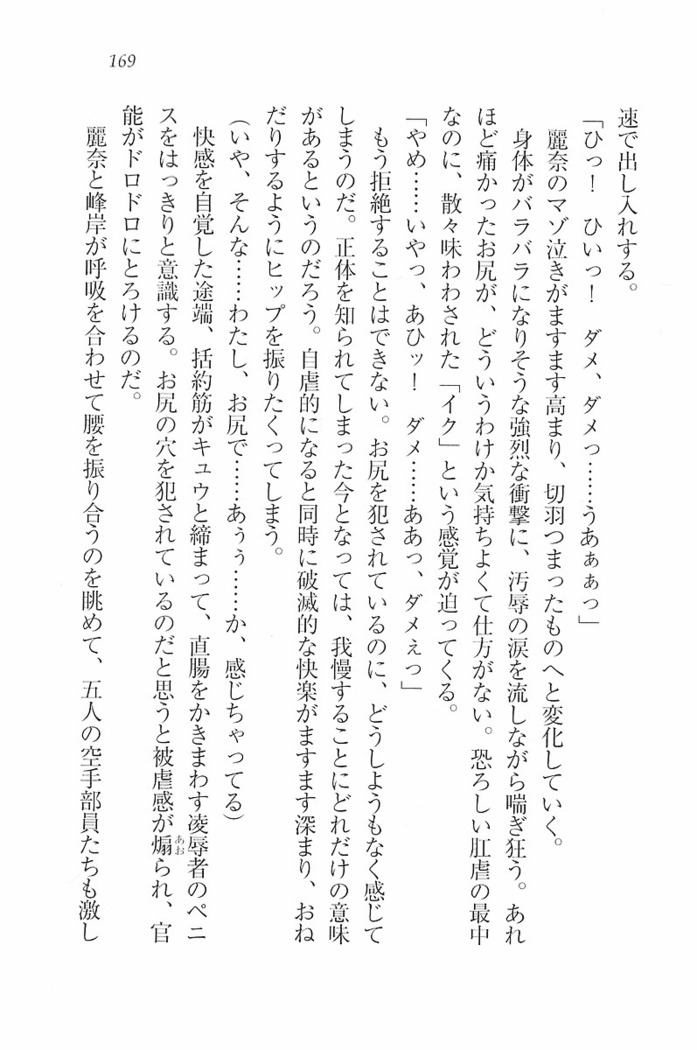 169
速で出し入れする。
「ひっ！　ひいっ！　ダメ、ダメっ……うあぁぁっ」
麗奈のマゾ泣きがますます高まり、切羽つまったものへと変化していく。
身体がバラバラになりそうな強烈な衝撃に、汚辱の涙を流しながら喘ぎ狂う。あれ
ほど痛かったお尻が、どういうわけか気持ちよくて仕方がない。恐ろしい肛虐の最中
なのに、散々味わわされた「イク」という感覚が迫ってくる。
「やめ……いやっ、あひッ！　ダメ……ああっ、ダメぇっ」
もう拒絶することはできない。お尻を犯されているのに、どうしようもなく感じて
しまうのだ。正体を知られてしまった今となっては、我慢することにどれだけの意味
があるというのだろう。自虐的になると同時に破滅的な快楽がますます深まり、おね
だりするようにヒップを振りたくってしまう。
（いや、そんな……わたし、お尻で……あぅぅ……か、感じちゃってる）
快感を自覚した途端、括約筋がキュウと締まって、直腸をかきまわす凌辱者のペニ
スをはっきりと意識する。お尻の穴を犯されているのだと思うと被虐感が煽られ、官
能がドロドロにとろけるのだ。
麗奈と峰岸が呼吸を合わせて腰を振り合うのを眺めて、五人の空手部員たちも激し